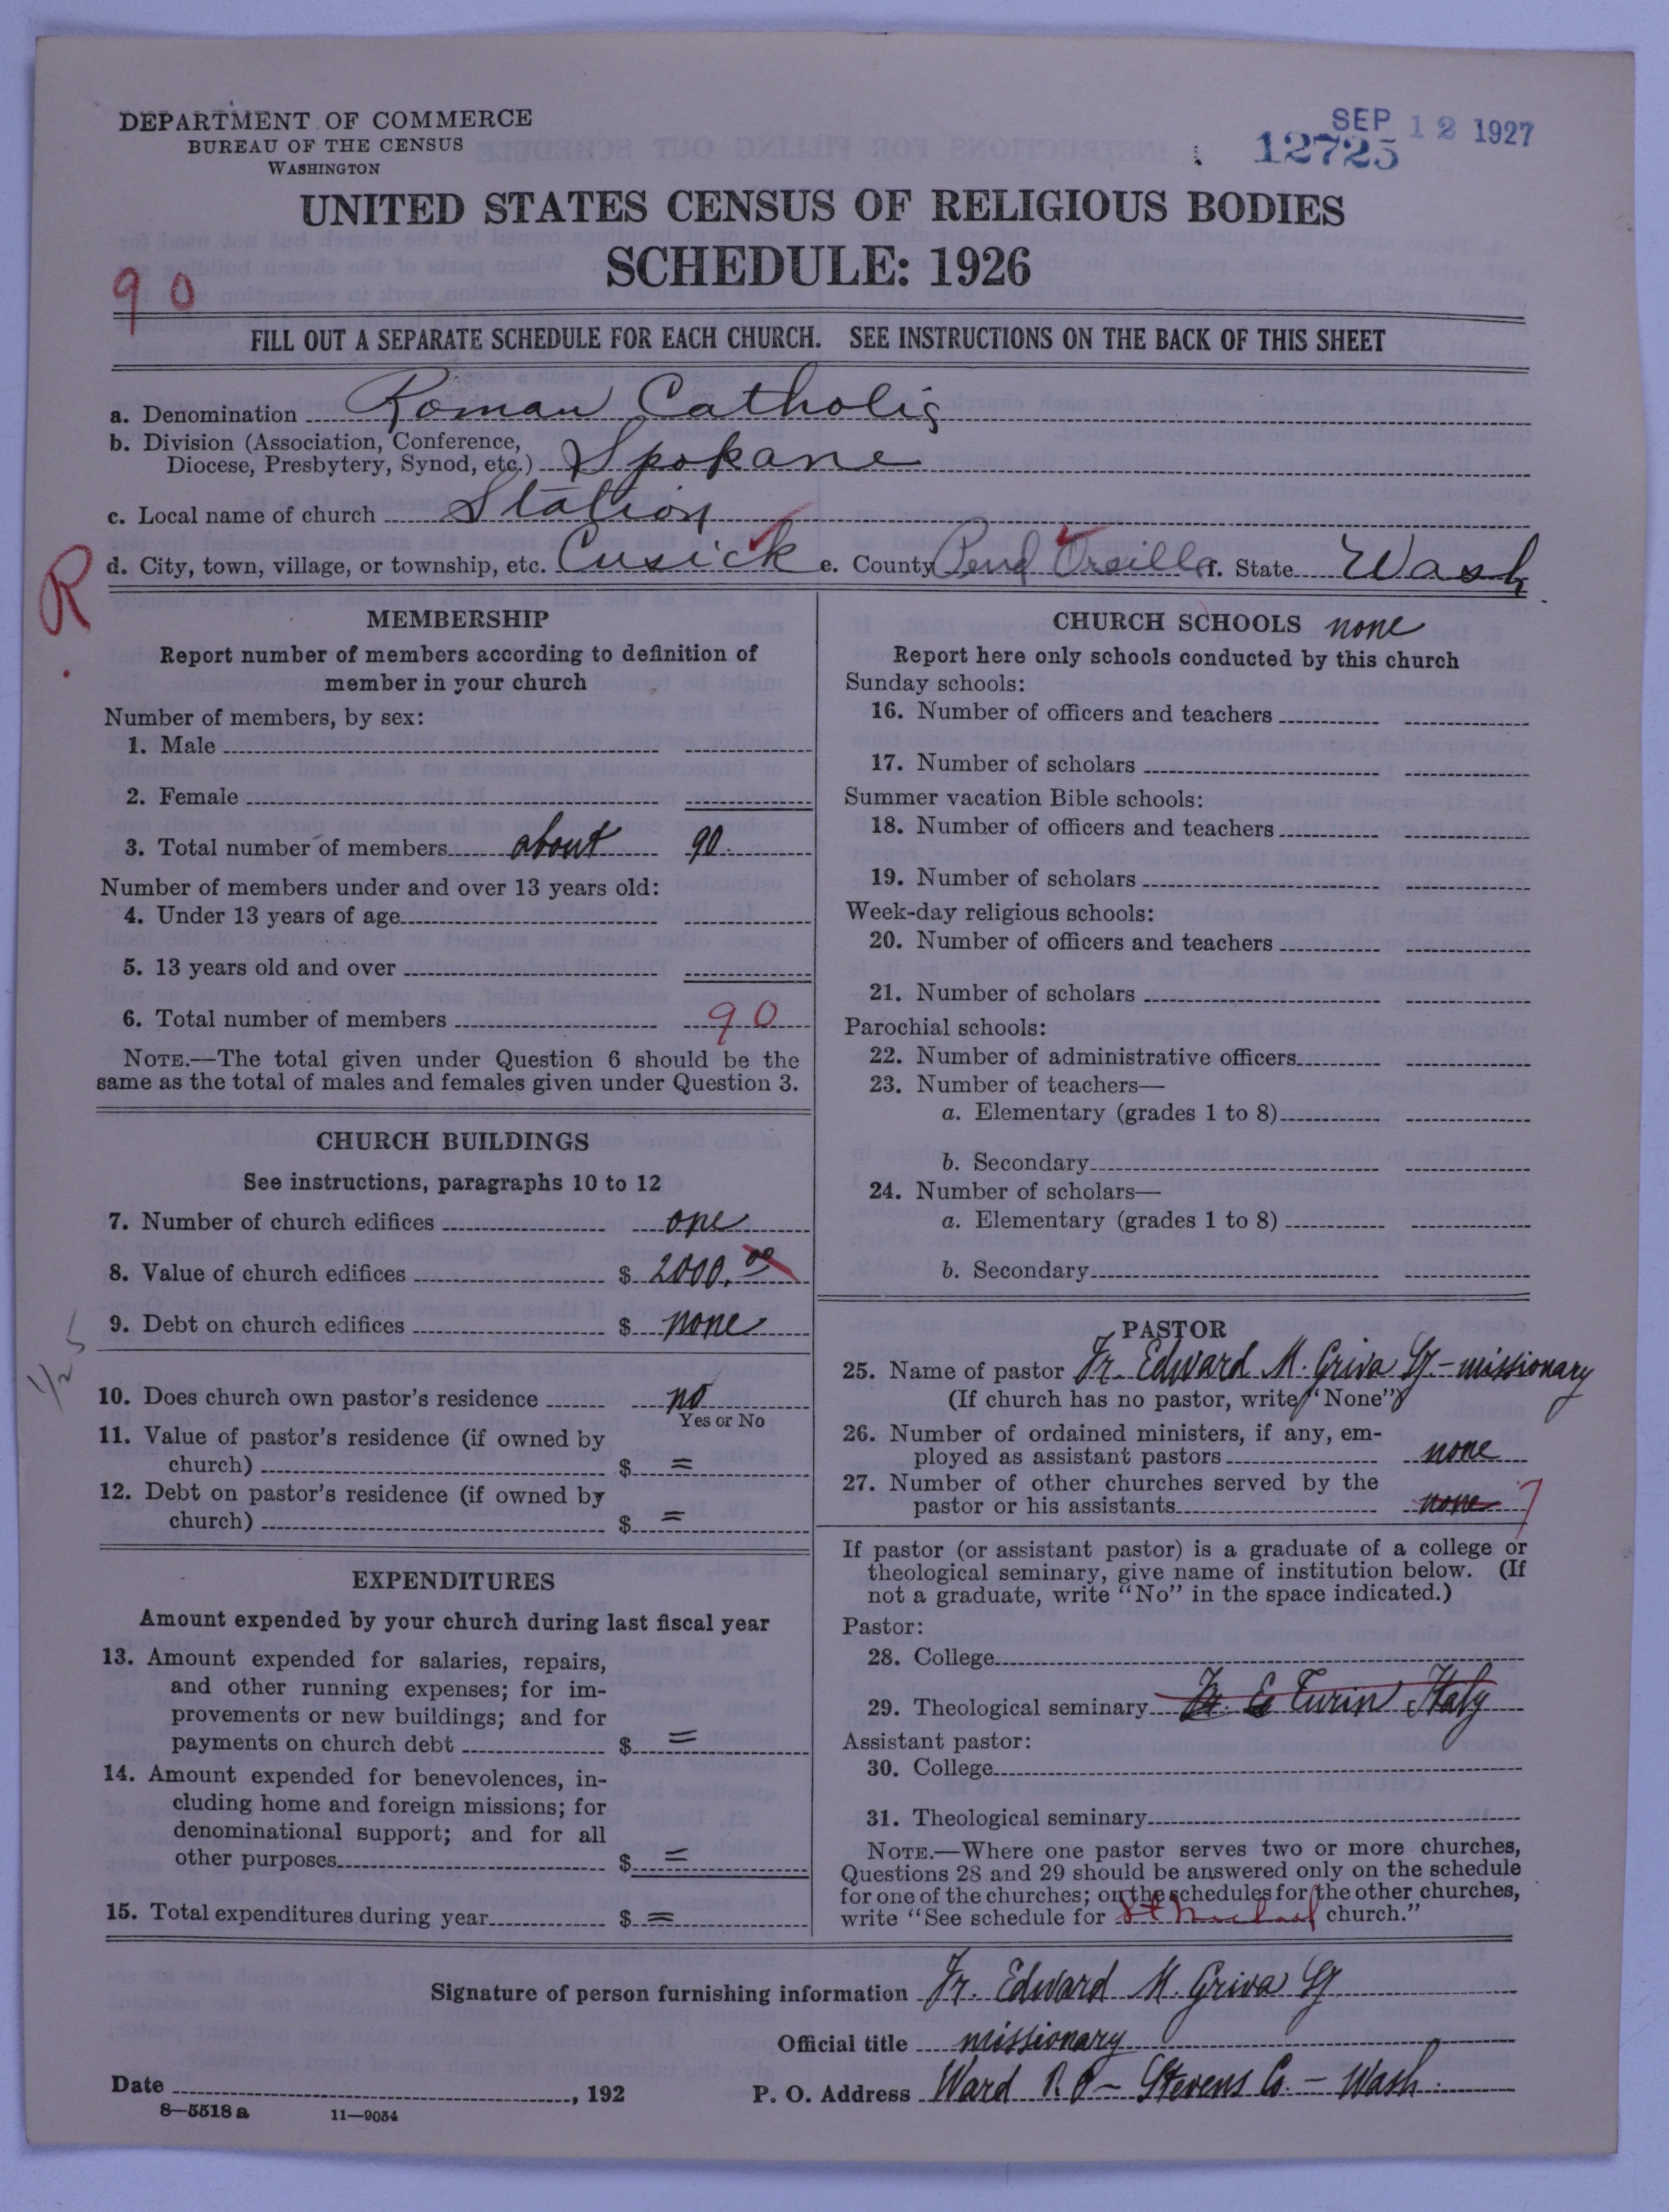 DEPARTMENT OF COMMERCE
BUREAU OF THE CENSUS
WASHINGTON
SEP 12 1927
12725
UNITED STATES CENSUS OF RELIGIOUS BODIES
SCHEDULE: 1926
90
FILL OUT A SEPARATE SCHEDULE FOR EACH CHURCH. SEE INSTRUCTIONS ON THE BACK OF THIS SHEET
a. Denomination Roman Catholic
b. Division (Association, Conference,
Diocese, Presbytery, Synod, etc.) Spokane
c. Local name of church Station
R
d. City, town, village, or township, etc. Cusick e. County Pend Oreille f. State Wash
MEMBERSHIP
Report number of members according to definition of
member in your church
Number of members, by sex:
1. Male
2. Female
3. Total number of members about 90
Number of members under and over 13 years old:
4. Under 13 years of age
5. 13 years old and over
6. Total number of members 90
NOTE.—The total given under Question 6 should be the
same as the total of males and females given under Question 3.
CHURCH BUILDINGS
See instructions, paragraphs 10 to 12
7. Number of church edifices one
8. Value of church edifices $ 2000.00
9. Debt on church edifices $ none
1/25
10. Does church own pastor's residence no
Yes or No
11. Value of pastor's residence (if owned by
church) $ =
12. Debt on pastor's residence (if owned by
church) $ =
EXPENDITURES
Amount expended by your church during last fiscal year
13. Amount expended for salaries, repairs,
and other running expenses; for im-
provements or new buildings; and for
payments on church debt $ =
14. Amount expended for benevolences, in-
cluding home and foreign missions; for
denominational support; and for all
other purposes $ =
15. Total expenditures during year $ =
CHURCH SCHOOLS none
Report here only schools conducted by this church
Sunday schools:
16. Number of officers and teachers
17. Number of scholars
Summer vacation Bible schools:
18. Number of officers and teachers
19. Number of scholars
Week-day religious schools:
20. Number of officers and teachers
21. Number of scholars
Parochial schools:
22. Number of administrative officers
23. Number of teachers—
a. Elementary (grades 1 to 8)
b. Secondary
24. Number of scholars—
a. Elementary (grades 1 to 8)
b. Secondary
PASTOR
25. Name of pastor Fr. Edward M. Griva SJ. - missionary
(If church has no pastor, write "None")
26. Number of ordained ministers, if any, em-
ployed as assistant pastors none
27. Number of other churches served by the
pastor or his assistants none 7
If pastor (or assistant pastor) is a graduate of a college or
theological seminary, give name of institution below. (If
not a graduate, write "No" in the space indicated.)
Pastor:
28. College
29. Theological seminary Turin Italy
Assistant pastor:
30. College
31. Theological seminary
NOTE.—Where one pastor serves two or more churches,
Questions 28 and 29 should be answered only on the schedule
for one of the churches; on the schedules for the other churches,
write "See schedule for St Michael church."
Signature of person furnishing information Fr. Edward M. Griva SJ.
Official title missionary
Date , 192
P. O. Address Ward P. O - Stevens Co. - Wash.
8—5518 a 11—9054